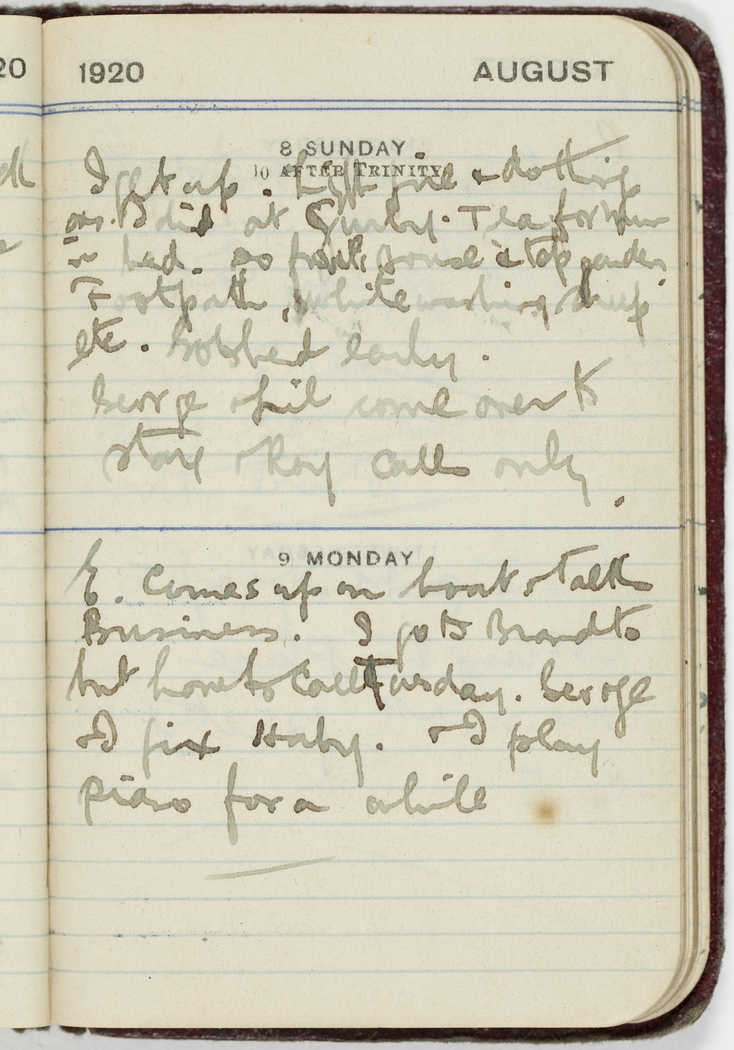 20 1920 AUGUST
8 SUNDAY
10 AFTER TRINITY
I get up. Light fire & do things
as I did at Tea for
in bed. so front & top garden
Footpath, white washing
etc. early.
George & come over to
stay & Roy calls only.
9 MONDAY
E. Comes up on boat & talks
Business. I go to
but have to call Tuesday. George
& I fix Haby. & I play
piano for a while